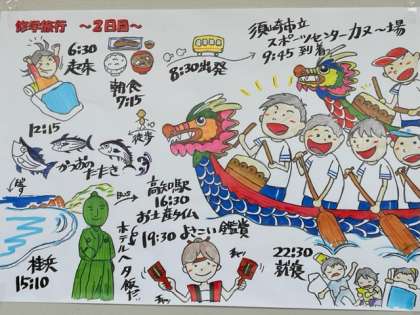 修学旅行 ～2日目～
6:30
起床
朝食
7:15
8:30出発
須崎市立
スポーツセンターカヌー場
9:45 到着
12:15
徒歩
かつおのたたき
BUS
桂浜
15:10
高知駅
16:30
お土産タイム
ホテルへ夕飯だ
19:30 よさこい鑑賞
22:30
就寝